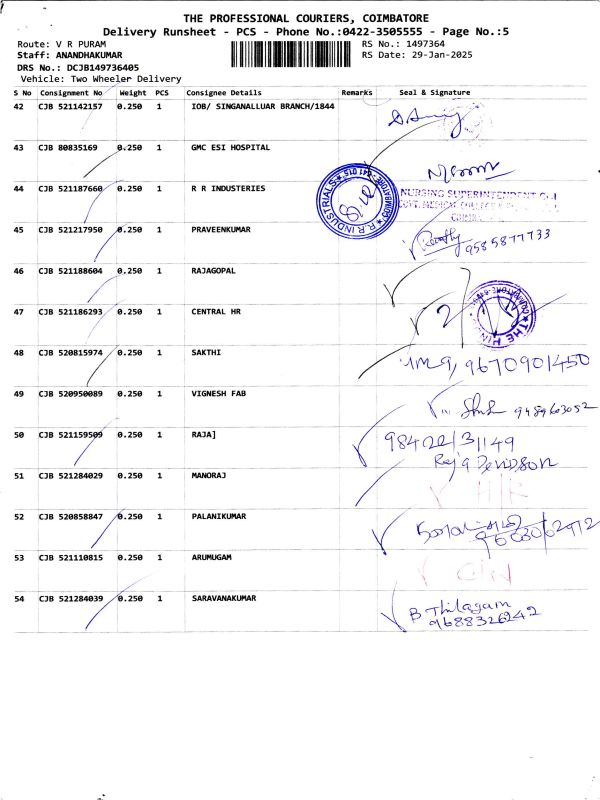 THE PROFESSIONAL COURIERS, COIMBATORE
Delivery Runsheet - PCS - Phone No.:0422-3505555 - Page No.:5
Route: V R PURAM
RS No.: 1497364
Staff: ANANDHAKUMAR
RS Date: 29-Jan-2025
DRS No.: DCJB149736405
Vehicle: Two Wheeler Delivery
S No Consignment No Weight PCS Consignee Details Remarks Seal & Signature
42 CJB 521142157 0.250 1 IOB/ SINGANALLUAR BRANCH/1844
43 CJB 80835169 0.250 1 GMC ESI HOSPITAL
44 CJB 521187660 0.250 1 R R INDUSTERIES
R.R INDUSTRIALS
NURSING SUPERINTENDENT
45 CJB 521217950 0.250 1 PRAVEENKUMAR
9585877733
46 CJB 521188604 0.250 1 RAJAGOPAL
47 CJB 521186293 0.250 1 CENTRAL HR
2
48 CJB 520815974 0.250 1 SAKTHI
9670901450
49 CJB 520950089 0.250 1 VIGNESH FAB
9489603052
50 CJB 521159509 0.250 1 RAJA]
98422/31149
Raja Devidson
51 CJB 521284029 1 0.250 MANORAJ
H/R
52 CJB 520858847 0.250 1 PALANIKUMAR
53 CJB 521110815 0.250 1 ARUMUGAM
54 CJB 521284039 0.250 1 SARAVANAKUMAR
B Thilagam
9688326242